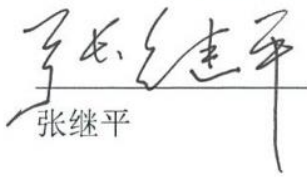 张继平
张继平